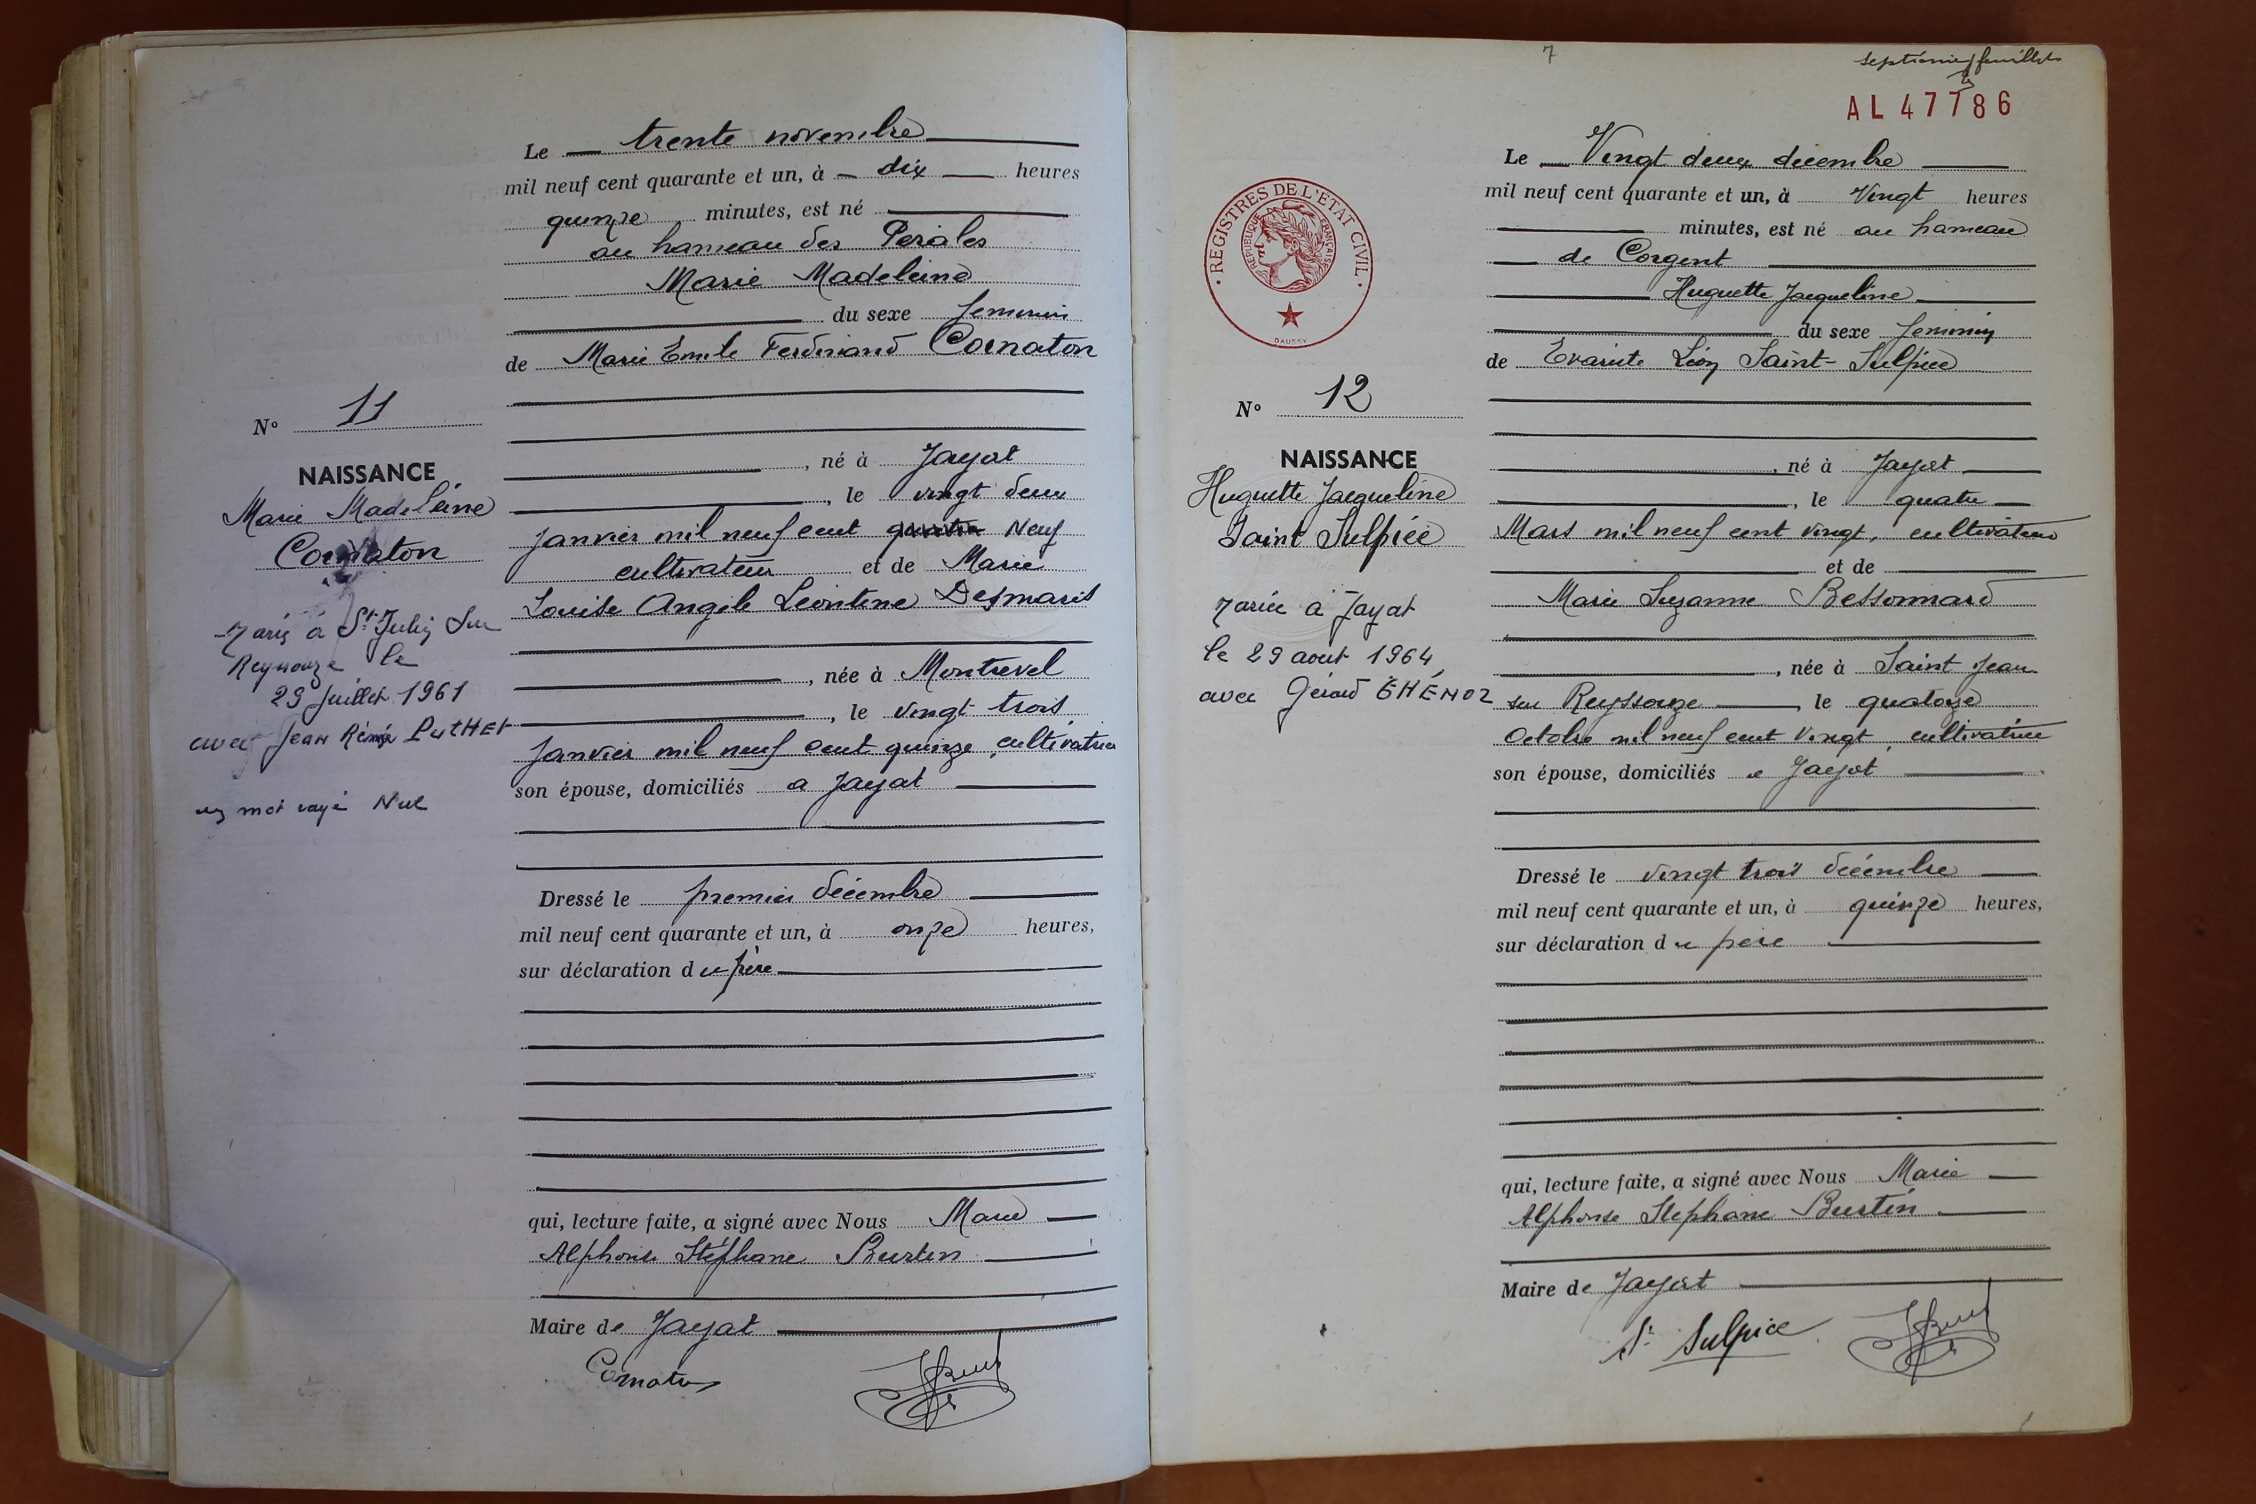 Le trente novembre
mil neuf cent quarante et un, à dix heures
quinze minutes, est né
au hameau des Perales
Marie Madeleine
du sexe feminin
de Marie Emile Ferdinand Cornaton
N° 11
, né à Jayat
NAISSANCE
, le vingt deux
Marie Madeleine
janvier mil neuf cent Neuf
Cornaton
cultivateur et de Marie
Louise Angèle Léontine Desmaris
Mariée à St Julien Sur
Reyssouze le
29 Juillet 1961
avec Jean Rémy PUTHET
, née à Montrevel
, le vingt trois
janvier mil neuf cent quinze, cultivatrice
son épouse, domiciliés a Jayat
un mot rayé Nul
Dressé le premier décembre
mil neuf cent quarante et un, à onze heures,
sur déclaration du père
qui, lecture faite, a signé avec Nous Marie
Alphonse Stéphane Burtin
Maire de Jayat
Cornaton
7
septième feuillet
AL 47786
REGISTRES DE L'ETAT CIVIL
REPUBLIQUE FRANÇAISE
DAUSSY
Le Vingt deux decembre
mil neuf cent quarante et un, à Vingt heures
minutes, est né au hameau
de Corgent
Huguette Jacqueline
du sexe feminin
de Evariste Léon Saint-Sulpice
N° 12
, né à Jayat
NAISSANCE
, le quatre
Huguette Jacqueline
Saint Sulpice
Mars mil neuf cent vingt, cultivateur
et de
Marie Suzanne Bessonnard
Mariée à Jayat
le 29 aout 1964
avec Gérard THÉNOZ
, née à Saint Jean
sur Reyssouze, le quatorze
Octobre mil neuf cent Vingt, cultivatrice
son épouse, domiciliés a Jayat
Dressé le vingt trois décembre
mil neuf cent quarante et un, à quinze heures,
sur déclaration du père
qui, lecture faite, a signé avec Nous Marie
Alphonse Stephane Burtin
Maire de Jayat
St Sulpice